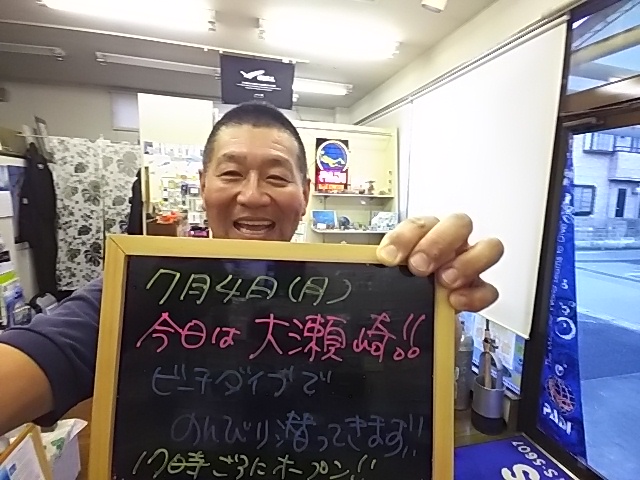 7月4日(月)
今日は大瀬崎!!
ビーチダイブで
のんびり潜ってきます!!
17時ごろにオープン!!
PADI
S-5607